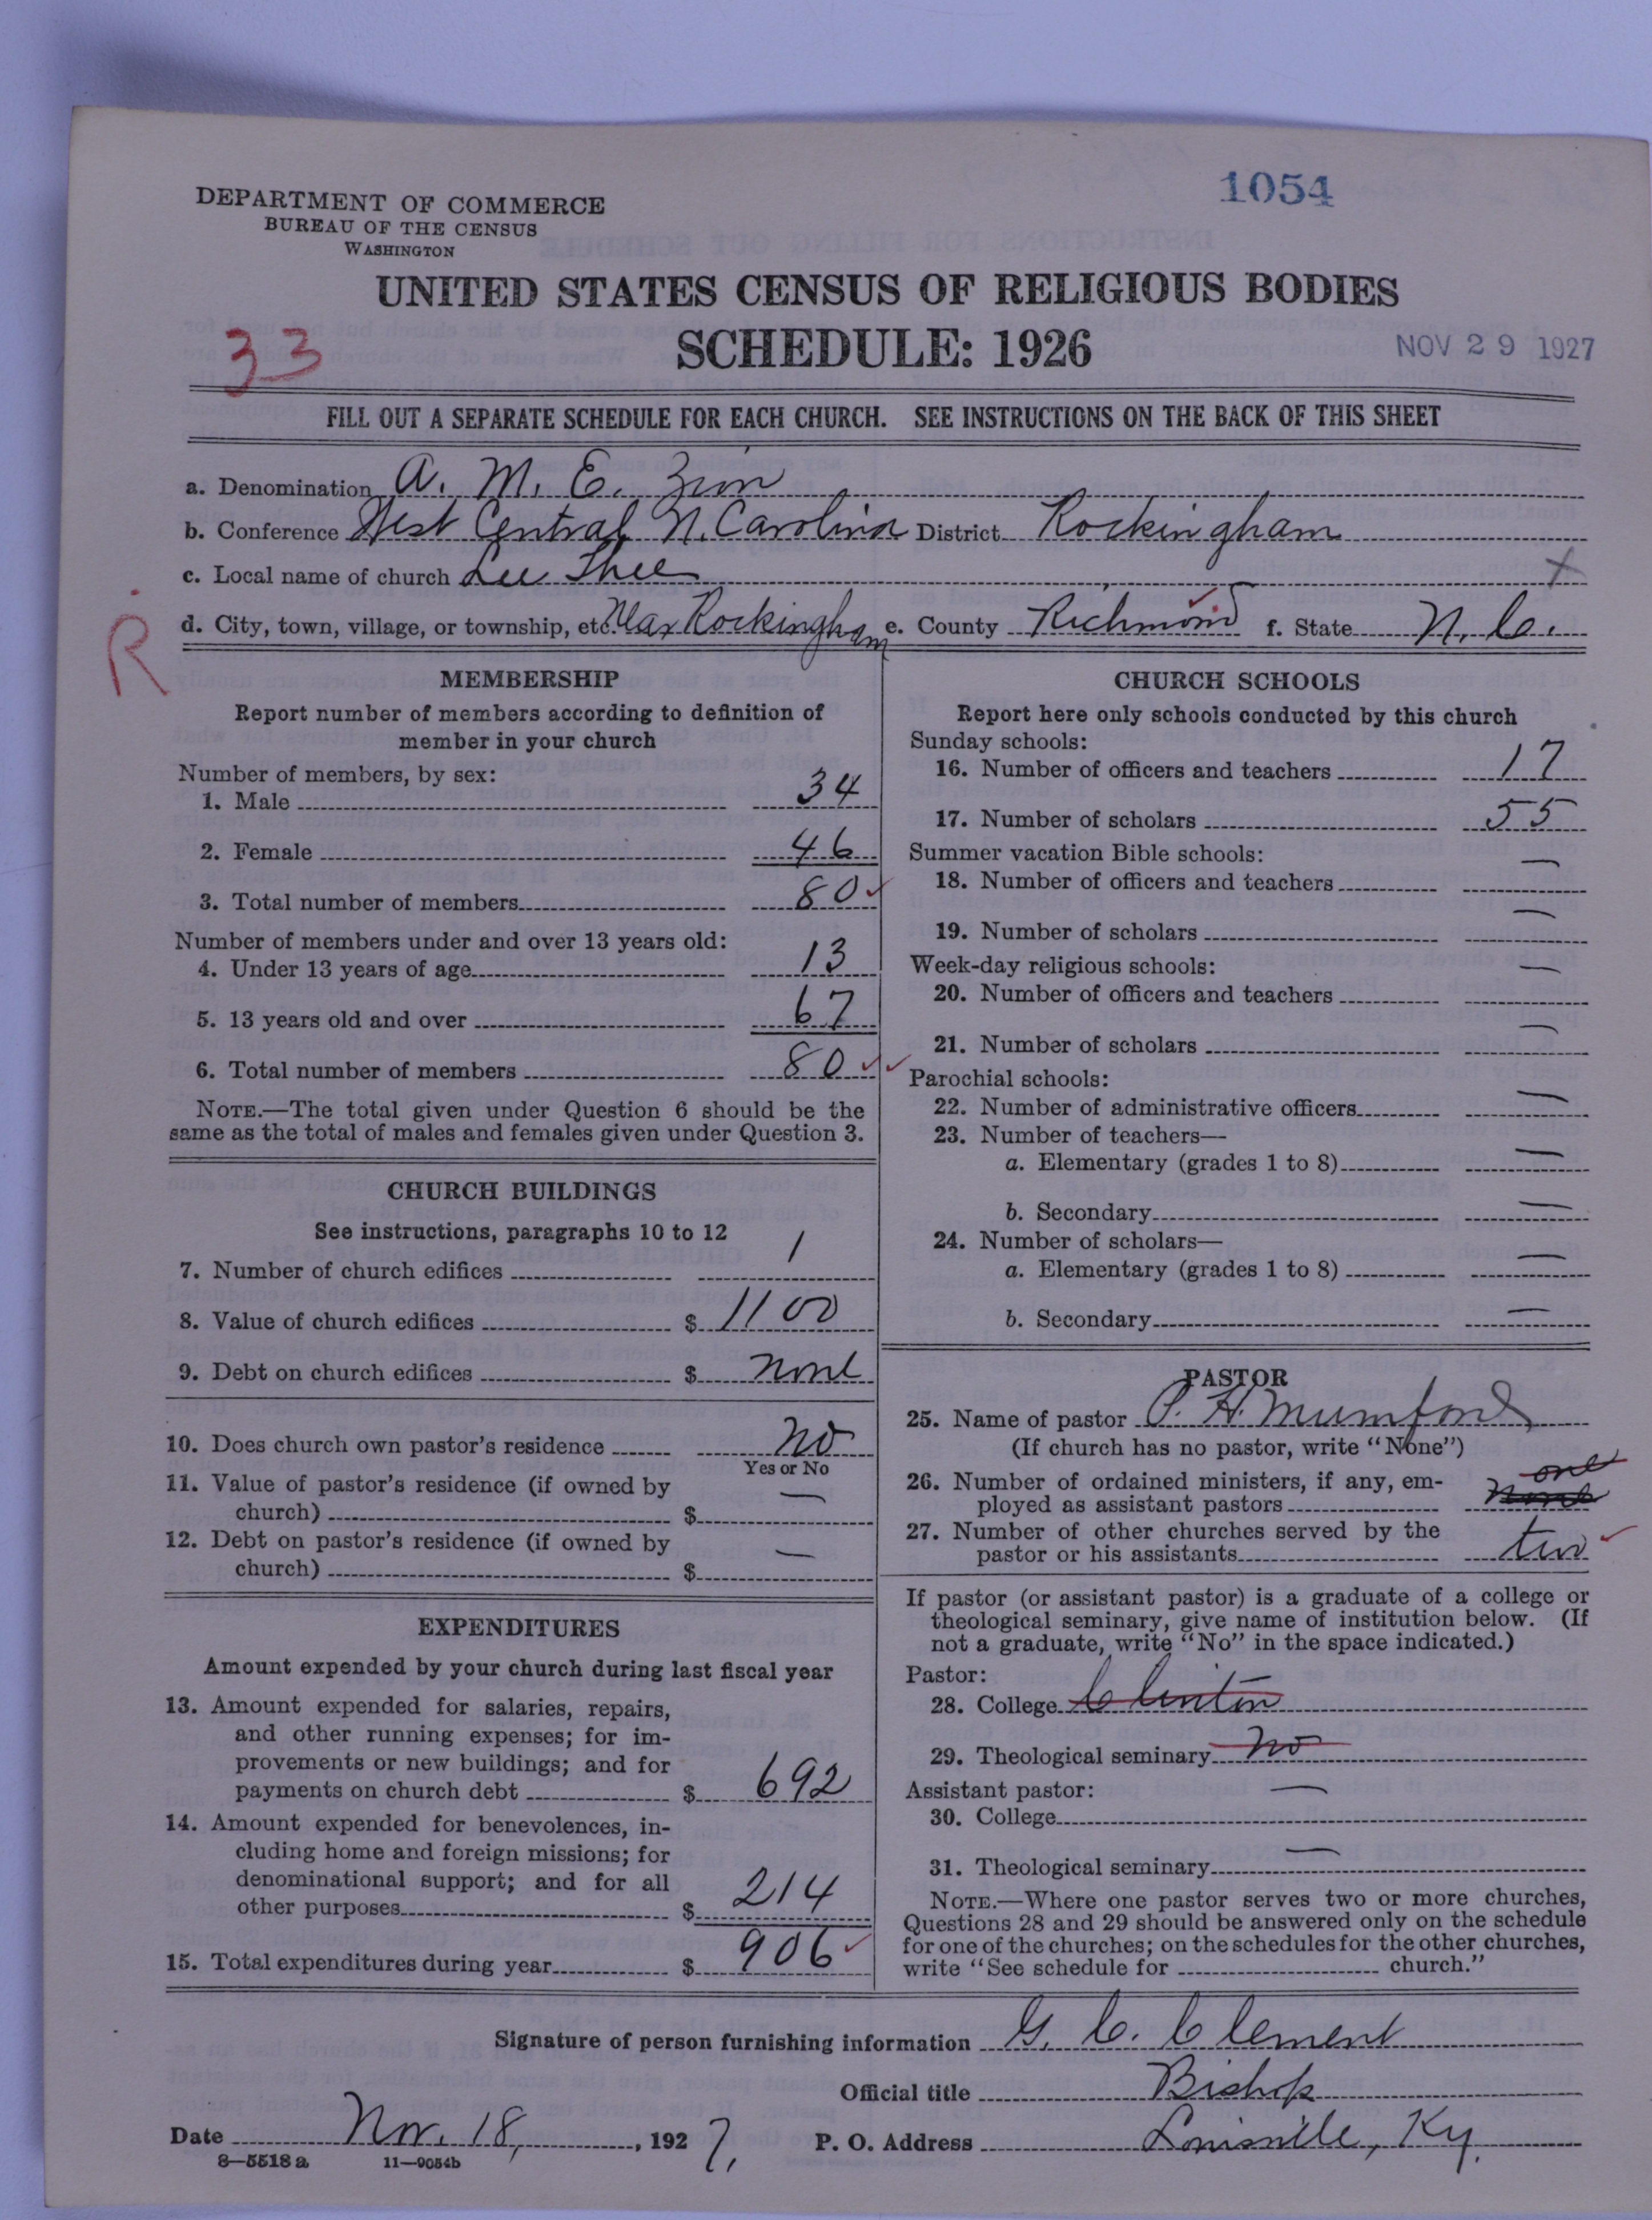 1054
DEPARTMENT OF COMMERCE
BUREAU OF THE CENSUS
WASHINGTON
UNITED STATES CENSUS OF RELIGIOUS BODIES
33
SCHEDULE: 1926
NOV 29 1927
FILL OUT A SEPARATE SCHEDULE FOR EACH CHURCH. SEE INSTRUCTIONS ON THE BACK OF THIS SHEET
a. Denomination A. M. E. Zion
b. Conference West Central N. Carolina District Rockingham
c. Local name of church Lee Thee X
R
d. City, town, village, or township, etc. Near Rockingham e. County Richmond f. State N. C.
MEMBERSHIP
Report number of members according to definition of
member in your church
Number of members, by sex:
1. Male 34
2. Female 46
3. Total number of members 80 ✓
Number of members under and over 13 years old:
4. Under 13 years of age 13
5. 13 years old and over 67
6. Total number of members 80 ✓✓
NOTE.—The total given under Question 6 should be the
same as the total of males and females given under Question 3.
CHURCH BUILDINGS
See instructions, paragraphs 10 to 12
7. Number of church edifices 1
8. Value of church edifices $ 1100
9. Debt on church edifices $ none
10. Does church own pastor's residence no
Yes or No
11. Value of pastor's residence (if owned by
church) $ —
12. Debt on pastor's residence (if owned by
church) $ —
EXPENDITURES
Amount expended by your church during last fiscal year
13. Amount expended for salaries, repairs,
and other running expenses; for im-
provements or new buildings; and for
payments on church debt $ 692
14. Amount expended for benevolences, in-
cluding home and foreign missions; for
denominational support; and for all
other purposes $ 214
15. Total expenditures during year $ 906 ✓
CHURCH SCHOOLS
Report here only schools conducted by this church
Sunday schools:
16. Number of officers and teachers 17
17. Number of scholars 55
Summer vacation Bible schools:
18. Number of officers and teachers —
19. Number of scholars —
Week-day religious schools:
20. Number of officers and teachers —
21. Number of scholars —
Parochial schools:
22. Number of administrative officers —
23. Number of teachers—
a. Elementary (grades 1 to 8) —
b. Secondary —
24. Number of scholars—
a. Elementary (grades 1 to 8) —
b. Secondary —
PASTOR
25. Name of pastor P. H. Mumford
(If church has no pastor, write "None")
26. Number of ordained ministers, if any, em- one
ployed as assistant pastors none
27. Number of other churches served by the
pastor or his assistants two ✓
If pastor (or assistant pastor) is a graduate of a college or
theological seminary, give name of institution below. (If
not a graduate, write "No" in the space indicated.)
Pastor:
28. College Clinton
29. Theological seminary no
Assistant pastor:
30. College —
31. Theological seminary —
NOTE.—Where one pastor serves two or more churches,
Questions 28 and 29 should be answered only on the schedule
for one of the churches; on the schedules for the other churches,
write "See schedule for church."
Signature of person furnishing information G. C. Clement
Official title Bishop
Date Nov. 18, 1927, P. O. Address Louisville, Ky.
8—5518 a 11—9054b